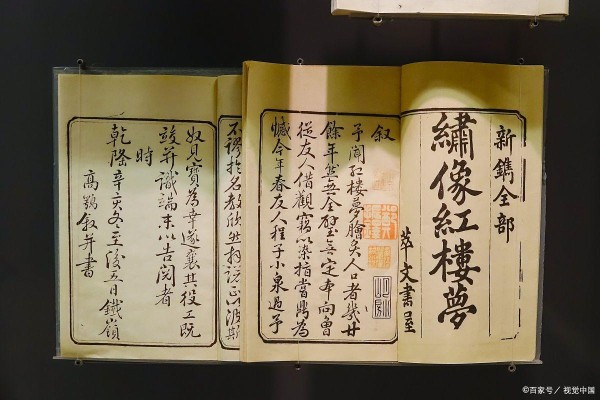 新鐫全部
繡像紅樓夢
萃文書屋
叙
予聞紅樓夢膾炙人口者幾廿
餘年然無全璧無定本向曾
從友人借觀竊以染指嘗鼎為
憾今年春友人程子小泉過予
不謬於名教欣然拜諾正以波斯
奴見寶為幸遂襄其役工既
竣并識端末以告閱者
時
乾隆辛亥冬至後五日鐵嶺
高鶚叙并書
©百家号／视觉中国